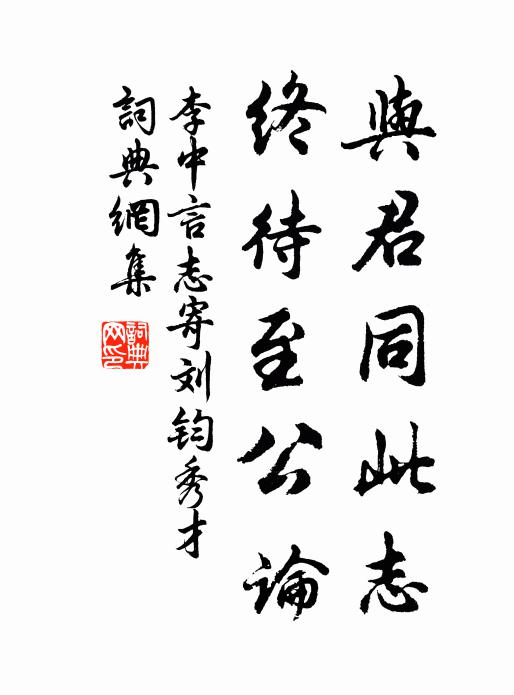 與君同此志
終待至公論
李中言志寄刘钧秀才
詞典網集
詞典網印